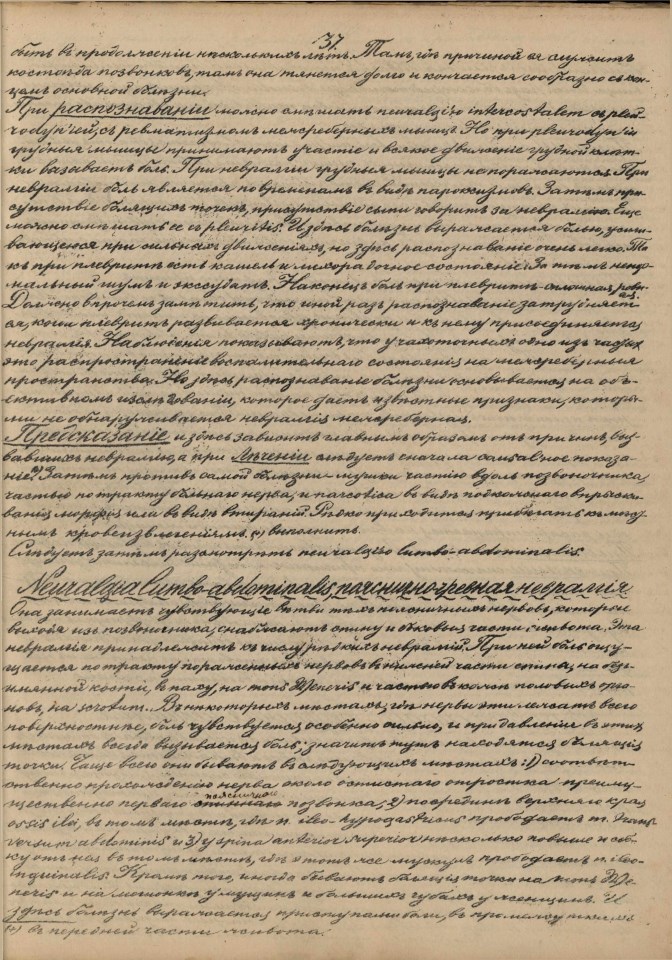 37.
быть въ продолженіи нѣсколькихъ лѣтъ. Тамъ, гдѣ причиной ея служитъ
костоѣда позвонковъ, тамъ она тянется долго и кончается сообразно съ кон-
цемъ основной болѣзни.
При распознаваніи можно смѣшать neuralgію intercostalem съ pleu-
rodyn'іей, съ ревматизмомъ межреберныхъ мышцъ. Но при pleurodyn'іи
грудныя мышцы принимаютъ участіе и всякое движеніе грудной клѣт-
ки вазываетъ боль. При невралгіи грудныя мышцы не поражаются. При
невралгіи боль является по временамъ въ видѣ пароксизмовъ. Затѣмъ при-
сутствіе болящихъ точекъ, присутствіе сыпи говоритъ за невралгію. Еще
можно смѣшать ее съ pleuritis. И здѣсь болѣзнь выражается болью, усили-
вающеюся при сильныхъ движеніяхъ, но здѣсь распознаваніе очень легко. Та-
къ при плевритѣ есть кашель и лихорадочное состояніе. За тѣмъ ненор-
мальный шумъ и экссудатъ. Наконецъ боль при плевритѣ
Должно впрочемъ замѣтить, что иной разъ распознаваніе затрудняет-
ся, когда плевритъ развивается хронически и къ нему присоединяется
невралгія. Наблюденія показываютъ, что у чахоточныхъ одно изъ частыхъ
это распространеніе воспалительнаго состоянія на межреберныя
пространства. Но здѣсь распознаваніе болѣзни основывается на объ-
ективномъ изслѣдованіи, которое даетъ извѣстные признаки, которы-
ми не обнаруживается невралгія межреберная.
Предсказаніе и здѣсь зависитъ главнымъ образомъ отъ причинъ, выз-
вавшихъ невралгію, а при лѣченіи слѣдуетъ сначала causal'ное показа-
ніе. Затѣмъ противъ самой болѣзни - мушки частію вдоль позвоночника,
частью по тракту больнаго нерва, и narcotica въ видѣ подкожнаго впрыски-
ванія морфія или въ видѣ втираній. Рѣдко приходится прибѣгать къ мѣст-
нымъ кровоизвлеченіямъ. выполнить.
Слѣдуетъ затѣмъ разсмотрѣть neuralgію lumbo-abdominalis.
Neuralgia lumbo-abdominalis, пояснично-чревная невралгія
Она занимаетъ чувствующіе вѣтви тѣхъ поясничныхъ нервовъ, которые
выходя изъ позвоночника, снабжаютъ спину и боковыя части живота. Эта
невралгія принадлежитъ къ числу рѣдкихъ невралгій. При ней боль ощу-
щается по тракту пораженныхъ нервовъ въ нижней части спины, на безы-
мянной костіе, въ паху, на mons Veneris и частью въ кожѣ половыхъ орга-
новъ, на scrotum. Въ нѣкоторыхъ мѣстахъ, гдѣ нервы эти лежатъ всего
поверхностнѣе, боль чувствуется особенно сильно, и при давленіи въ этихъ
мѣстахъ всегда вызывается боль; значитъ тутъ находятся болящія
точки. Чаще всего они бываютъ въ слѣдующихъ мѣстахъ: 1) соотвѣт-
ственно прохожденію нерва около остистаго отростка преиму-
щественно перваго поясничнаго позвонка, 2) посрединѣ верхняго края
ossis ilei, въ томъ мѣстѣ, гдѣ n. ileo-hypogastricus прободаетъ m. trans-
versum abdominis и 3) у spina anterior superior нѣсколько повыше и сбо-
ку отъ нея въ томъ мѣстѣ, гдѣ этотъ же мускулъ прободаетъ n. ileo-
inguinalis. Кромѣ того, иногда бываютъ болящія точки на mons Ve-
neris и на мошонкѣ у мущинъ и большихъ губахъ у женщинъ. И
здѣсь болѣзнь выражается приступами боли, въ промежуткахъ
въ передней части живота.